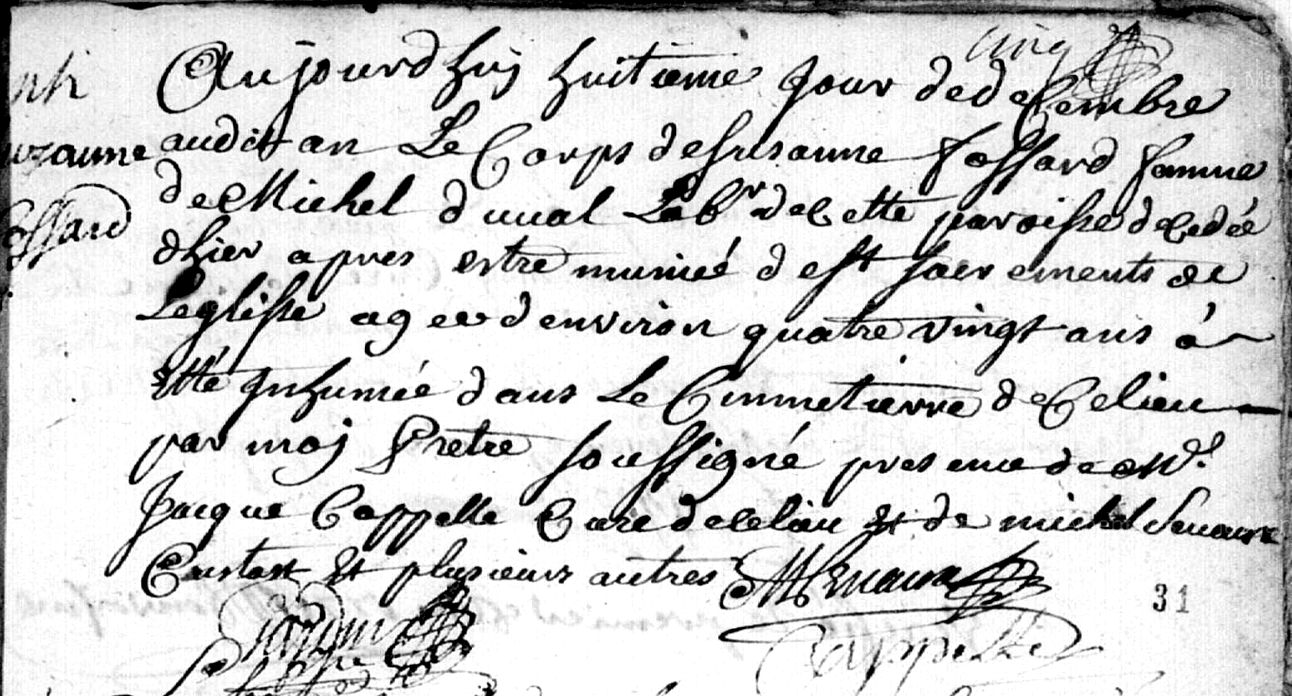 cinq
Aujourdhuy huitieme jour de decembre
audit an Le Corps de susanne fossard famme
de Michel duval Labr de cette paroisse decedée
dhier apres estre muniée dest sacrements de
Leglisse agee denviron quatre vingt ans à
etté Inhumée dans Le Cimmetierre de Celieu
par moy Pretre soussigné presence de Mr.
Jacque Cappelle Curé de celieu et de michel
Custost et plusieurs autres
uzanne
ossard
Jardin
Cappelle
31